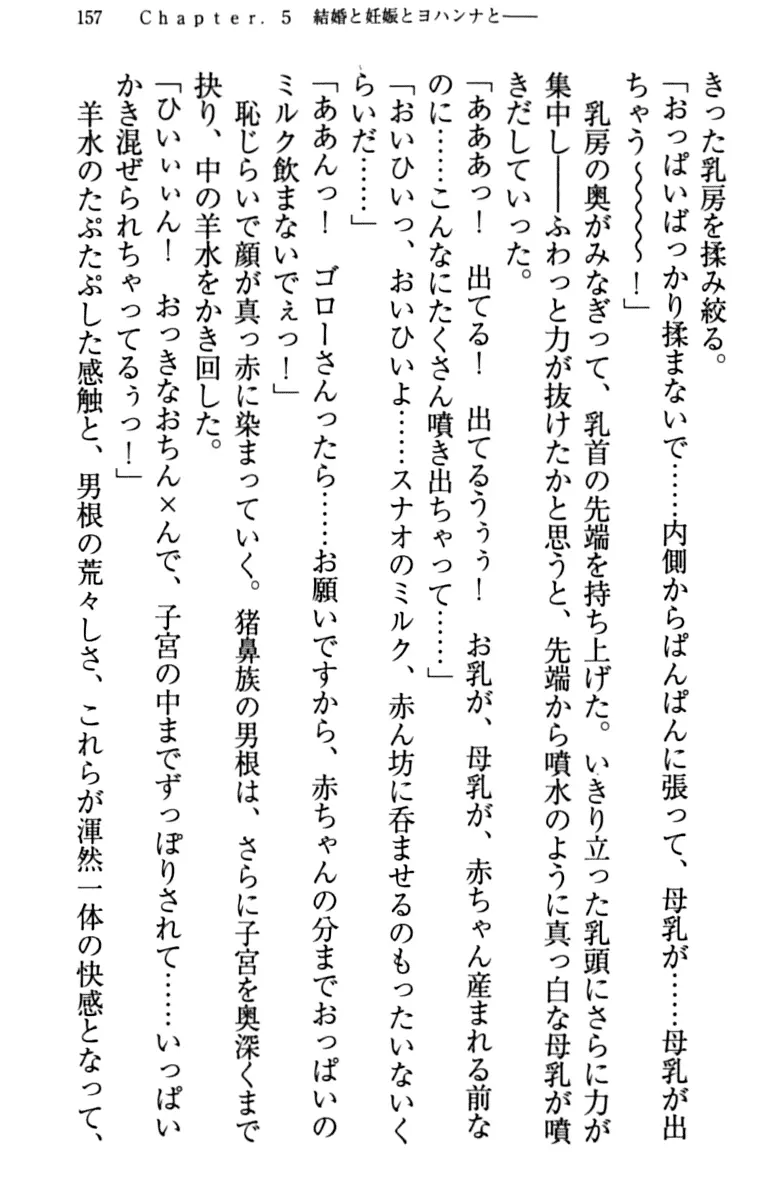 157　Chapter. 5　結婚と妊娠とヨハンナと――
きった乳房を揉み絞る。
「おっぱいばっかり揉まないで……内側からぱんぱんに張って、母乳が……母乳が出
ちゃう～～～～！」
　乳房の奥がみなぎって、乳首の先端を持ち上げた。いきり立った乳頭にさらに力が
集中し――ふわっと力が抜けたかと思うと、先端から噴水のように真っ白な母乳が噴
きだしていった。
「あああっ！　出てる！　出てるうぅぅ！　お乳が、母乳が、赤ちゃん産まれる前な
のに……こんなにたくさん噴き出ちゃって……」
「おいひいっ、おいひいよ……スナオのミルク、赤ん坊に呑ませるのもったいないく
らいだ……」
「ああんっ！　ゴローさんったら……お願いですから、赤ちゃんの分までおっぱいの
ミルク飲まないでぇっ！」
　恥じらいで顔が真っ赤に染まっていく。猪鼻族の男根は、さらに子宮を奥深くまで
抉り、中の羊水をかき回した。
「ひいぃぃん！　おっきなおちん×んで、子宮の中までずっぽりされて……いっぱい
かき混ぜられちゃってるぅっ！」
　羊水のたぷたぷした感触と、男根の荒々しさ、これらが渾然一体の快感となって、